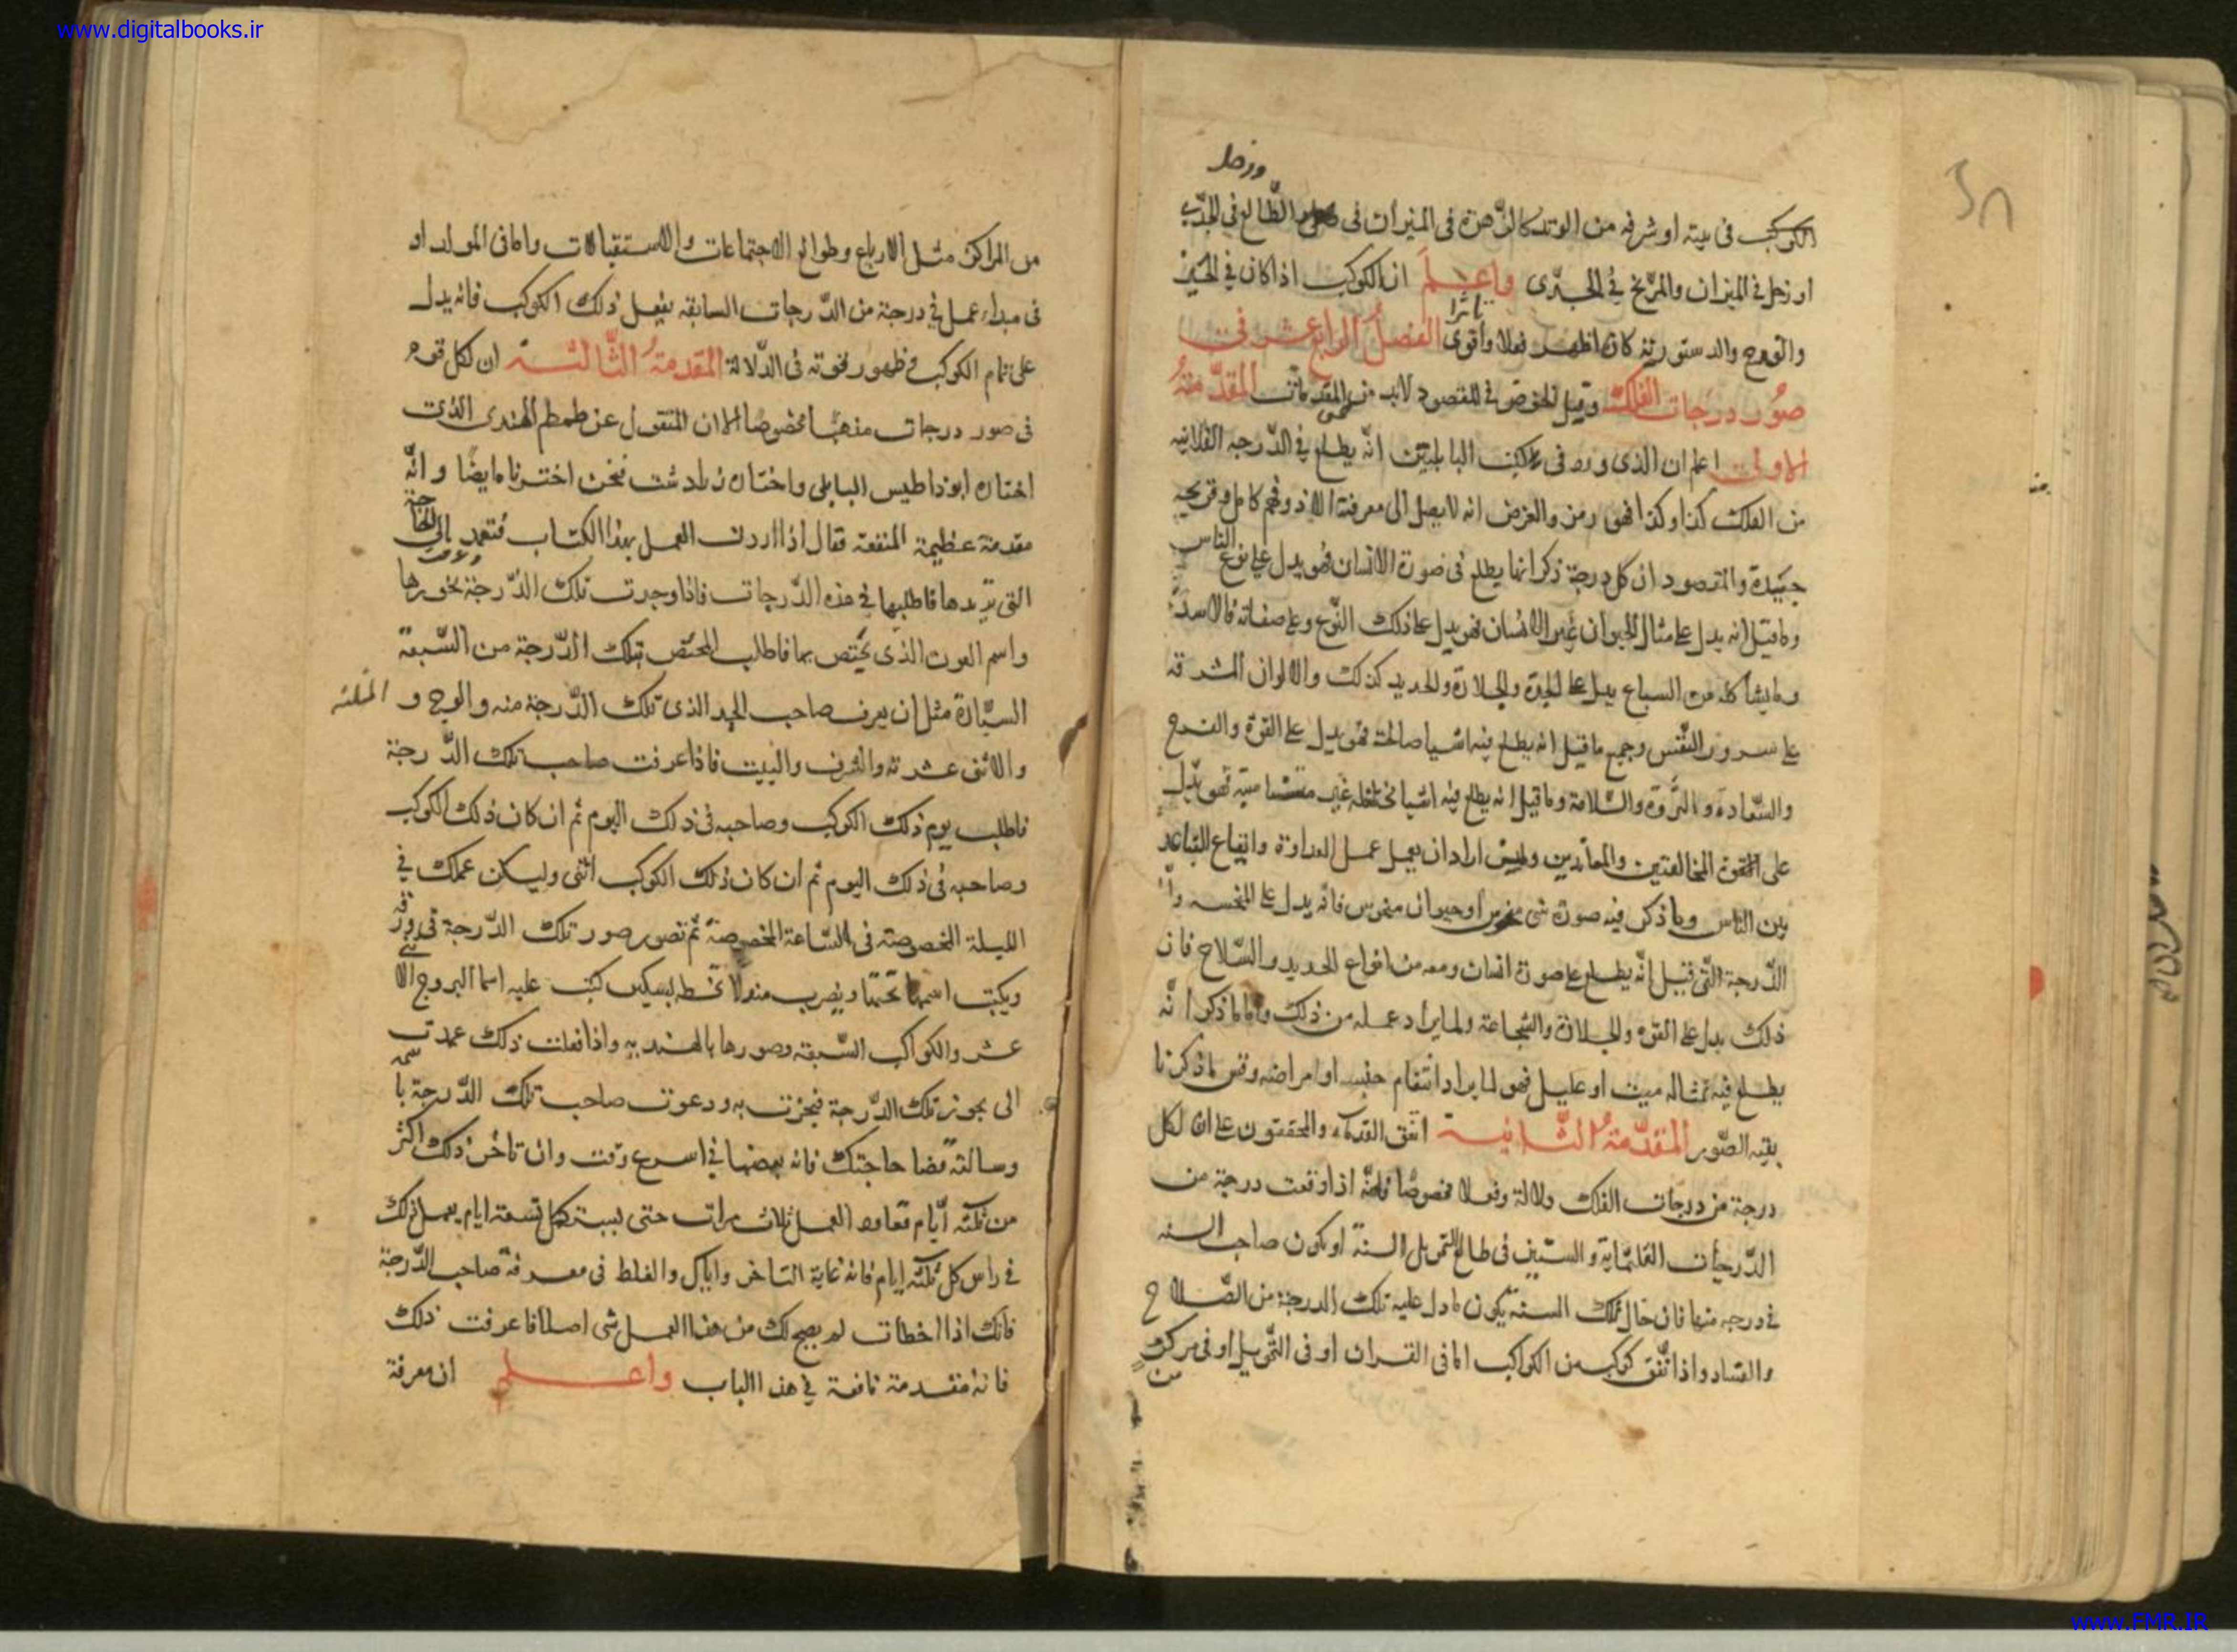 www.digitalbooks.ir
وزحل
الكوكب فى بيته او شرفه من الوتد كالزهرة فى الميزان فى الطالع فى الجدى
او زحل فى الميزان والمريخ فى الجدى واعلم ان الكوكب اذا كان فى الحيز
تاثرا
والوجه والدستورية كان اظهر فعلا واقوى الفصل الرابع عشر فى
صور درجات الفلك وقبل الخوض فى المقصود لابد من المقدمات المقدمة
الاولى اعلم ان الذى ورد فى كتب البابليين انه يطلع فى الدرجه الفلانيه
من الفلك كذا وكذا فهو رمز والغرض انه لا يصل الى معرفة الا ذو فهم كامل وقريحه
جيدة والمقصود ان كل درجة ذكر انها يطلع فى صورة الانسان فهو يدل على نوع الناس
وما قيل انه يدل على مثال الحيوان غير الانسان فهو يدل على ذلك النوع وعلى صفاته فالاسد
وما يشاكله من السباع يدل على الحدة والجلادة والحديد كذلك والالوان المشرقه
على سرور النفس وجميع ما قيل انه يطلع فيه اشيا صالحة فهو يدل على القوة والفرح
والسعادة والثروة والسلامة وما قيل انه يطلع فيه اشيا مختلفه غير متشابهة فهو يدل
على القوة المخالفين والمعاندين ولمن اراد ان يعمل عمل العداوة وايقاع التباعد
بين الناس وما ذكر فيه صورة شى منحوس او حيوان منحوس فانه يدل على المنحسه واما
الدرجة التى قيل انه يطلع على صورة انسان ومعه من انواع الحديد والسلاح فان
ذلك يدل على القوة والجلادة والشجاعة ولما يراد عمله من ذلك واما ما ذكر انه
يطلع فيه تمثاله ميت او عليل فهو لما يراد انتقام او امراضه وقس ما ذكرنا
بقيه الصور المقدمة الثانية اتفق القدماء والمحققون على ان لكل
درجة من درجات الفلك دلالة وفعلا مخصوصا فلهذا اذا وقعت درجة من
الدرجات الثلثماية والستين فى طالع التحويل السنة او يكون صاحب السنه
فى درجه منها فان حال تلك السنة يكون ما دل عليه تلك الدرجة من الصلاح
والفساد واذا اتفق كوكب من الكواكب اما فى القران او فى التحويل او فى مركز
من
من المراكز مثل الارباع وطوالع الاجتماعات والاستقبالات واما فى المولد او
فى مبداء عمل فى درجة من الدرجات السابقه بفعل ذلك الكوكب فانه يدل
على تمام الكوكب فى ظهور نحوته فى الدلالة المقدمة الثالثة ان لكل قوم
فى صور درجات مذهبا مخصوصا الا ان المنقول عن طمطم الهندى الذى
اختاره ابوذاطيس البابلى واختاره زرادشت فنحن اخترناه ايضا وانه
مقدمة عظيمة المنفعة فقال اذا اردت العمل بهذا الكتاب فتعمد الى الحاجة
التى تريدها فاطلبها فى هذه الدرجات فاذا وجدت تلك الدرجة بخورها
واسم العون الذى يختص بها فاطلب المختص بتلك الدرجة من السبعة
السيارة مثل ان يعرف صاحب الحد الذى تلك الدرجة منه والوجه و المثلثه
والاثنى عشرته والشرف والبيت فاذا عرفت صاحب تلك الدرجة
فاطلب يوم ذلك الكوكب وصاحبه فى ذلك اليوم ثم ان كان ذلك الكوكب
وصاحبه فى ذلك اليوم ثم ان كان ذلك الكوكب انثى وليكن عملك فى
الليلة المخصوصة فى الساعة المخصوصة ثم تصور صور تلك الدرجة فى ورقة
ويكتب اسمها تحتها ويضرب مندلا تخطه بسكين كتب عليه اسما البروج الا
عشر والكواكب السبعة وصورها بالهنديه واذا فعلت ذلك عمدت
الى بخور تلك الدرجة فبخرت به ودعوت صاحب تلك الدرجة باسمه
وسالته قضا حاجتك فانه يمضها فى اسرع وقت وان تاخر ذلك اكثر
من ثلثة ايام فعاود العمل ثلاث مرات حتى تسعة ايام يعمل ذلك
فى راس كل ثلثة ايام فانه غاية التاخر واياك والغلط فى معرفة صاحب الدرجة
فانك اذا اخطات لم يصح لك من هذا العمل شى اصلا فاعرفت ذلك
فانه مقدمة نافعة فى هذا الباب واعلم ان معرفة
www.FMR.IR